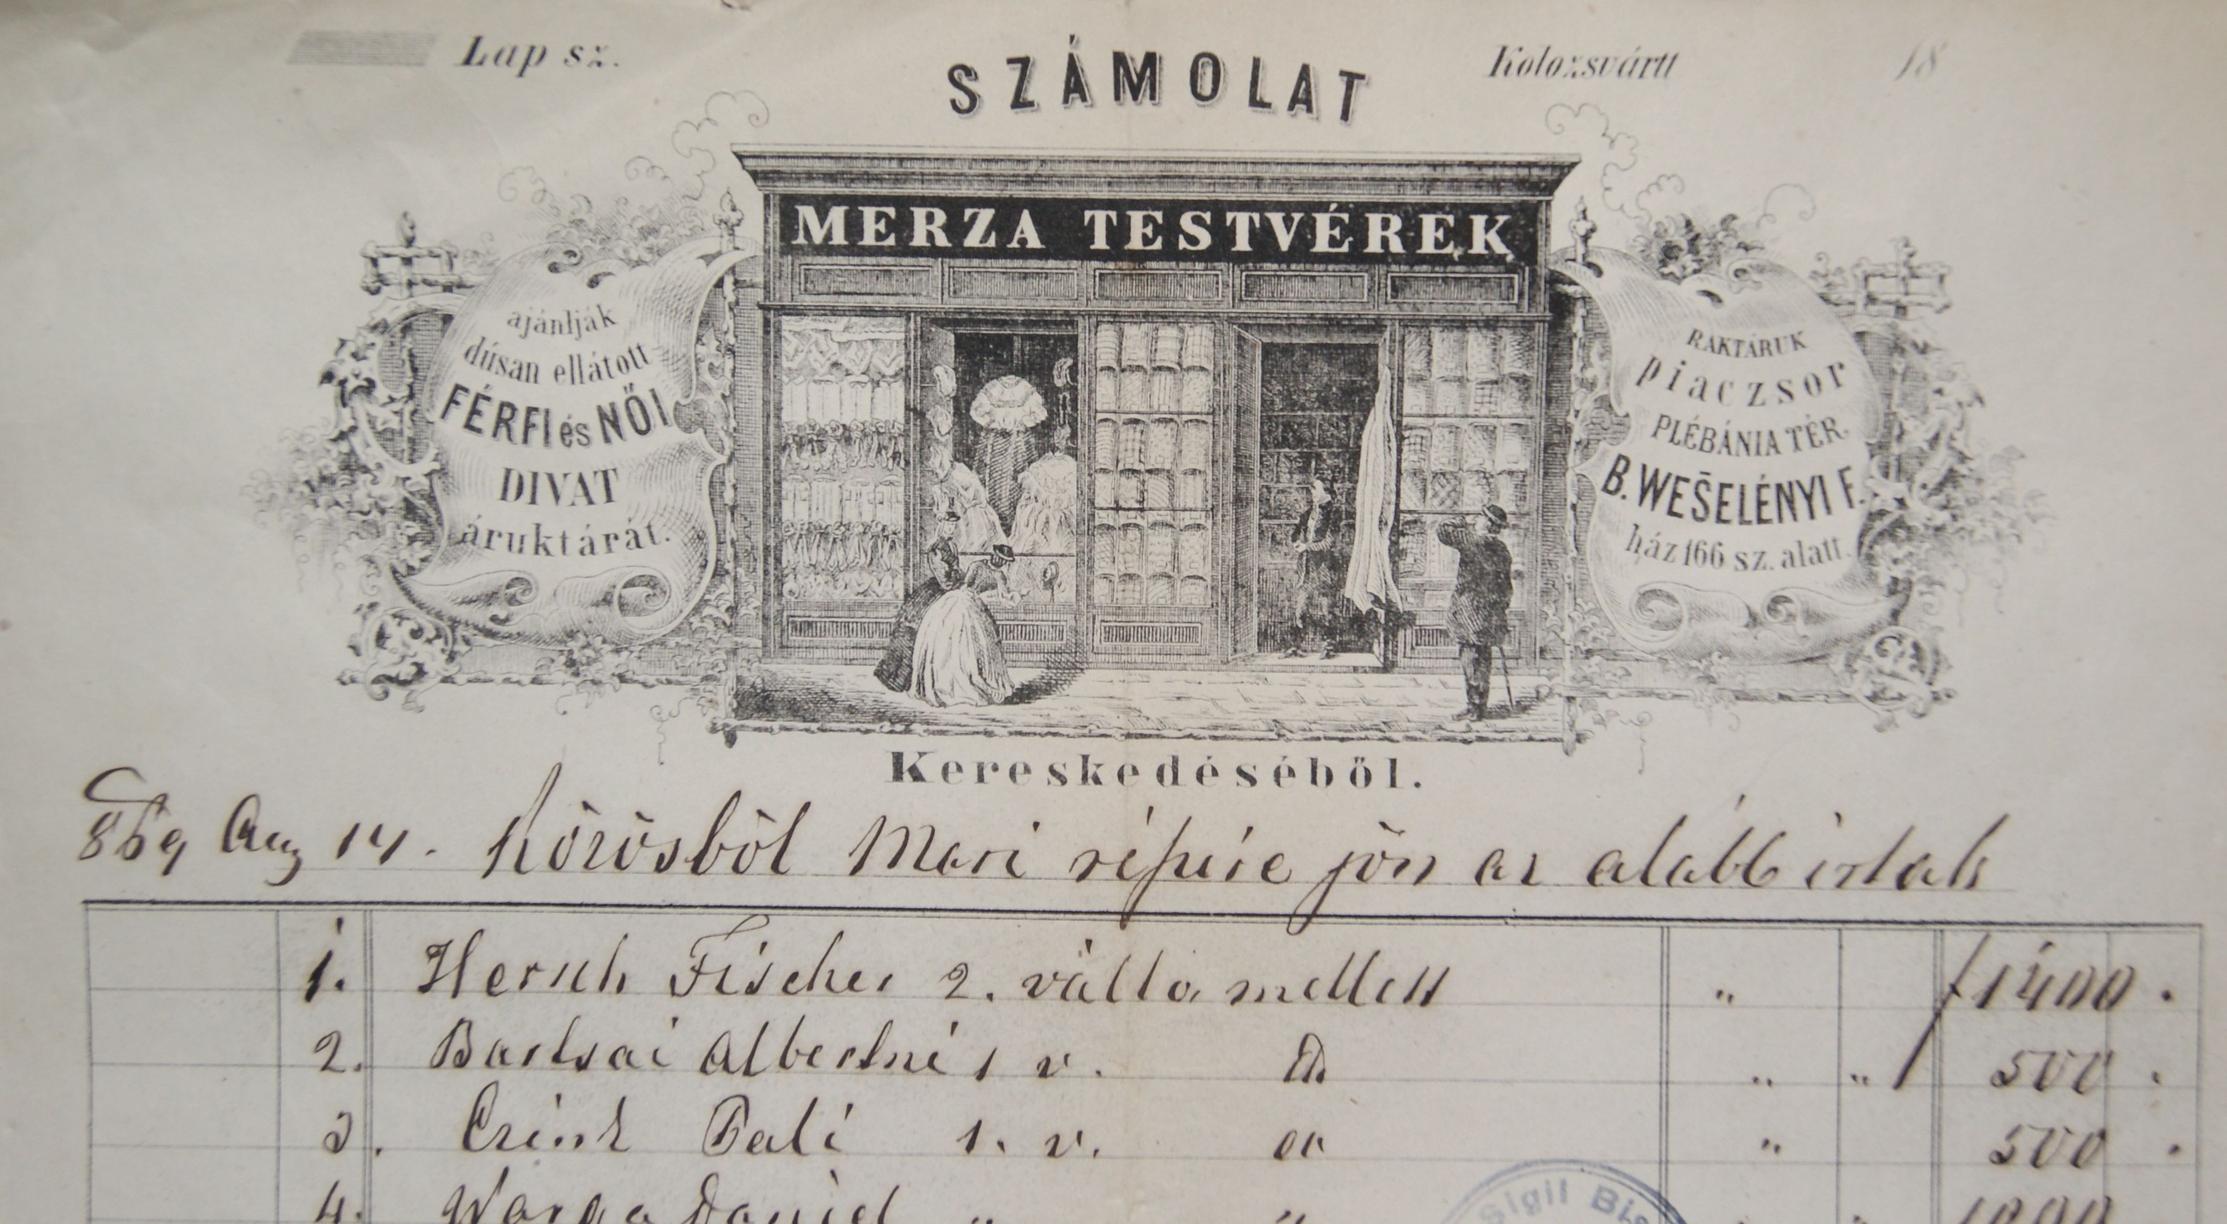 Lap sz.
SZÁMOLAT
Kolozsvártt 18
MERZA TESTVÉREK
ajánlják
dúsan ellátott
FÉRFI és NŐI
DIVAT
áruktárát.
RAKTÁRUK
piaczsor
PLÉBÁNIA TÉR.
B. WESELÉNYI F.
ház 166 sz. alatt
Kereskedéséből.
869 Aug 14. Körösböl Mari részére jön az alább irtak
1. Hersch Fischer 2. válto mellett " 1400.
2. Bartsai Albertné 1 v. " " 500.
3. Czink Pali 1. v. " 500.
4. Warga Dániel " "
Sigil Bis